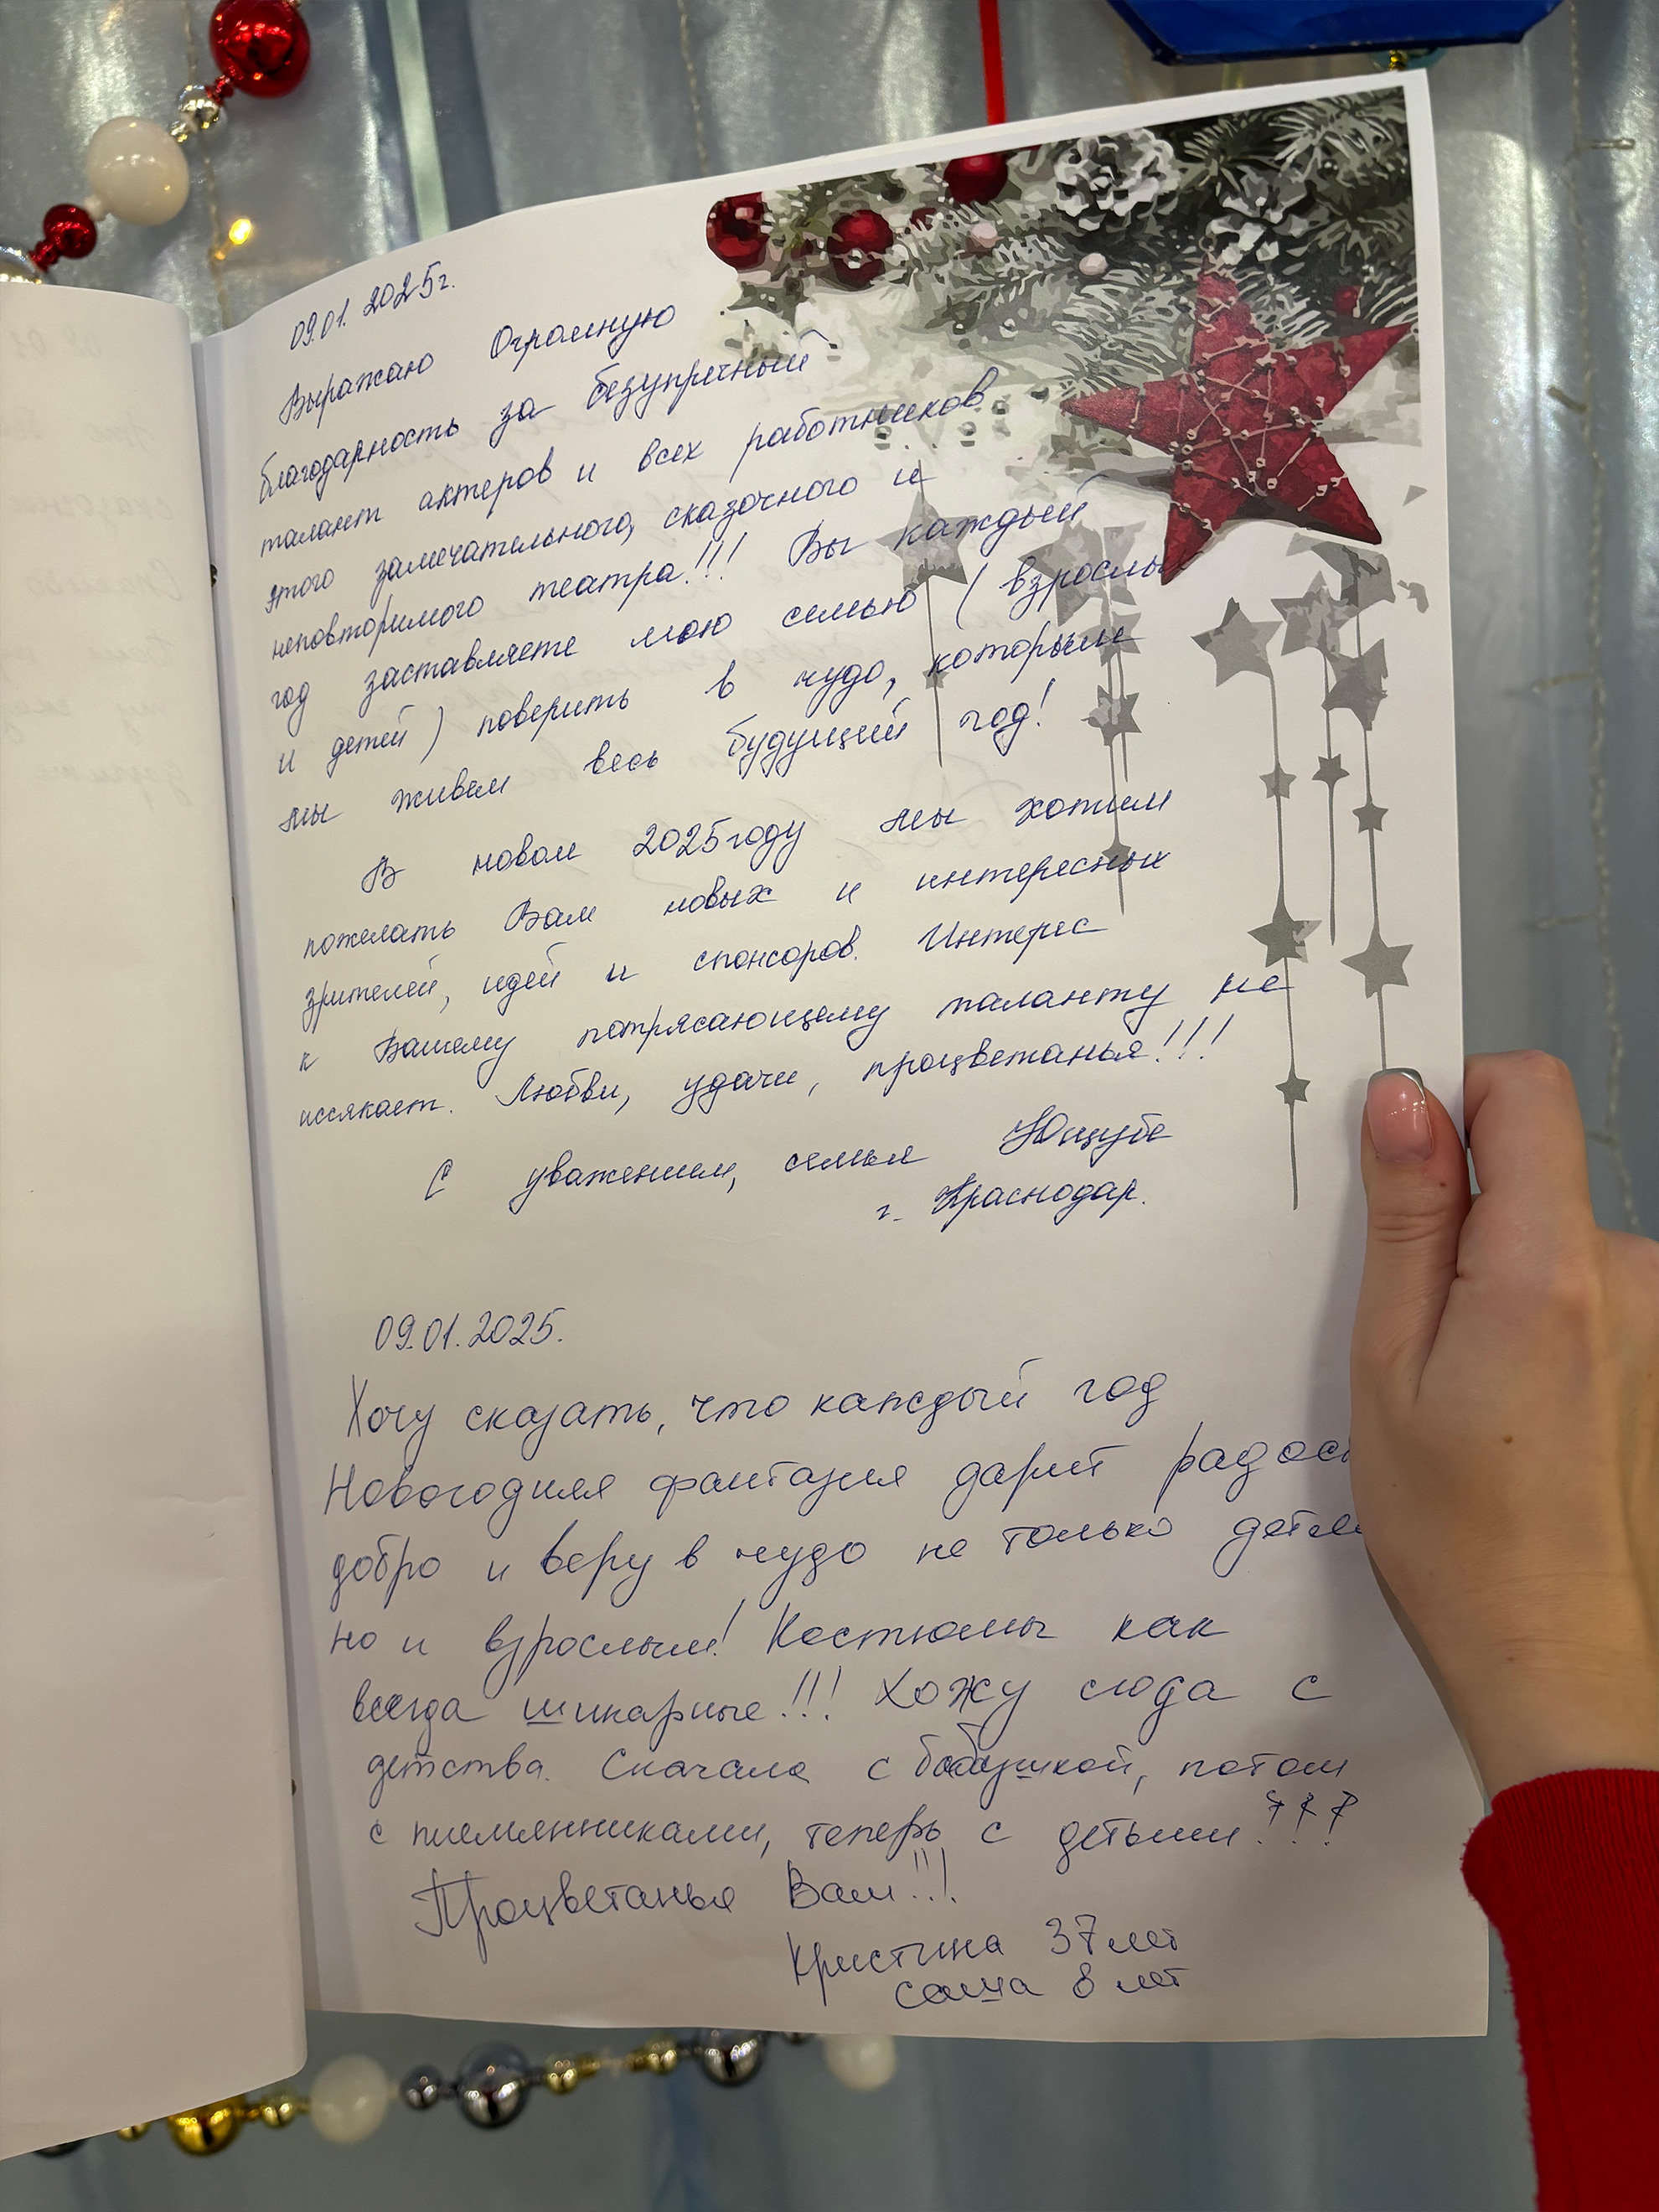 09.01. 2025г.
Выражаю Огромную
благодарность за безупречный
талант актеров и всех работников
этого замечательного, сказочного и
неповторимого театра!!! Вы каждый
год заставляете мою семью (взрослых
и детей) поверить в чудо, которым
мы живем весь будущий год!
В новом 2025году мы хотим
пожелать Вам новых и интересных
зрителей, идей и спонсоров. Интерес
к Вашему потрясающему таланту не
иссякает. Любви, удачи, процветанья!!!
С уважением, семья
г. Краснодар.
09.01.2025.
Хочу сказать, что каждый год
Новогодняя фантазия дарит радос
добро и веру в чудо не только дет
но и взрослым! Костюмы как
всегда шикарные!!! Хожу сюда с
детства. Сначала с бабушкой, потом
с племянниками, теперь с детьми!!!
Процветанья Вам!!!
Кристина 37 лет
Саша 8 лет